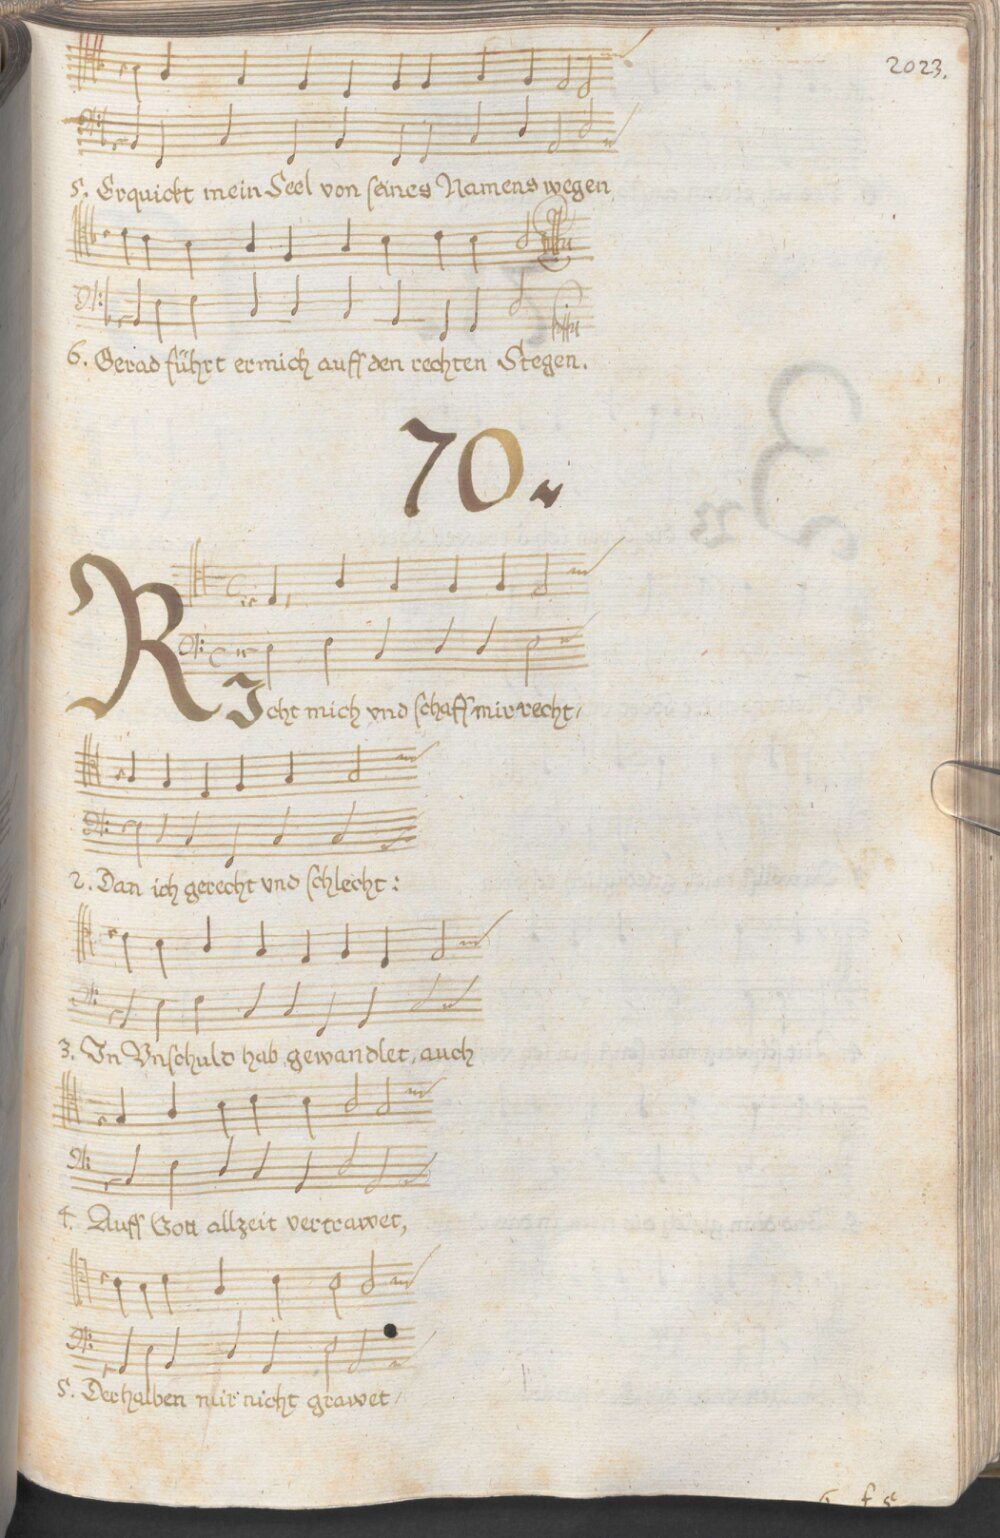 2023.
5. Erquickt mein Seel von seines Namens wegen
6. Gerad führt er mich auff den rechten Stegen.
70.
RIcht mich vnd schaff mir recht,
2. Dan ich gerecht vnd schlecht:
3. In Vnschuld hab gewandlet, auch
4. Auff Gott allzeit vertrawet,
5. Derhalben mir nicht grawet,